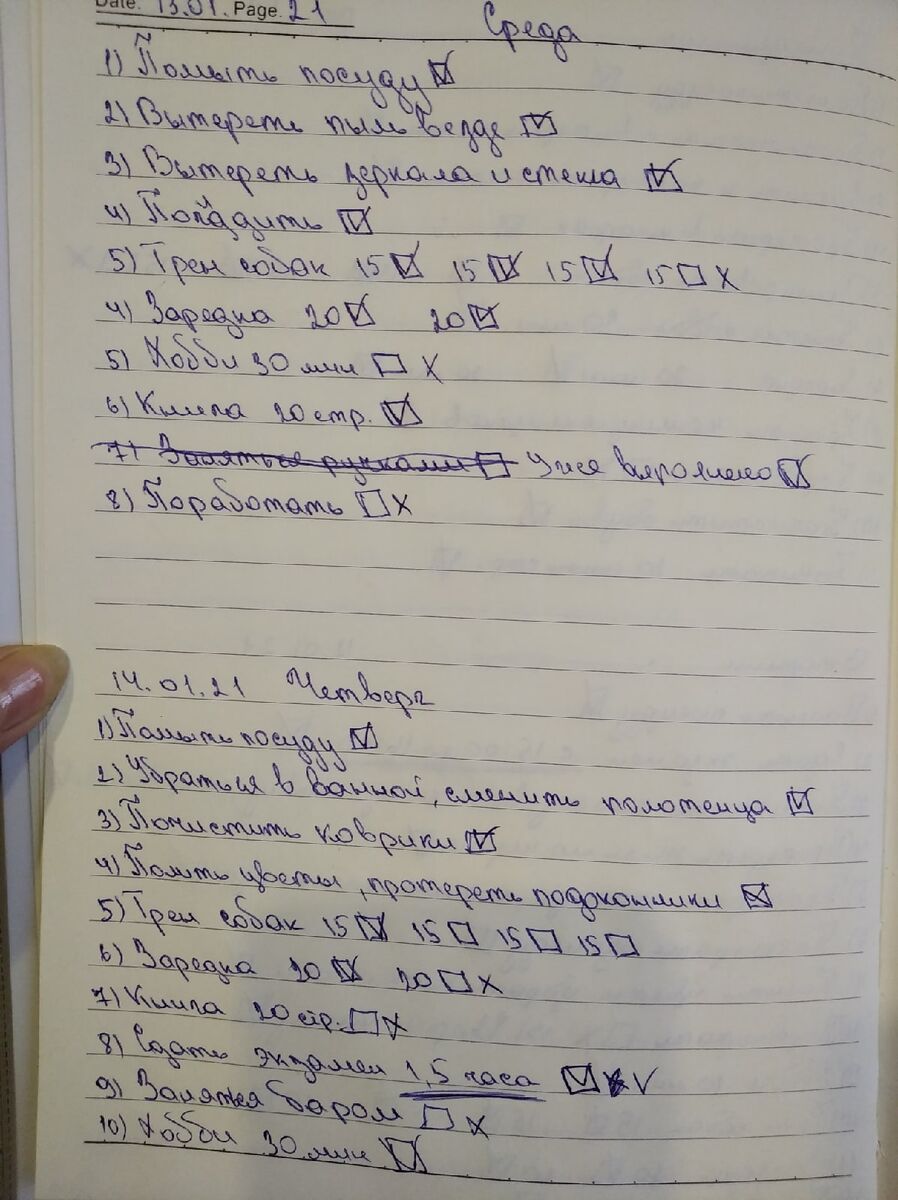 Date: 13.01. Page. 21
Среда
1) Помыть посуду ☑
2) Вытереть пыль везде ☑
3) Вытереть зеркала и стекла ☑
4) ☑
5) Трен собак 15 ☑ 15 ☑ 15 ☑ 15 ☐ х
4) Зарядка 20 ☑ 20 ☑
5) Хобби 30 мин ☐ х
6) Книга 20 стр. ☑
7) Заняться ручками ☐ Уже выполнено ☑
8) Поработать ☐ х
14.01.21 Четверг
1) Помыть посуду ☑
2) Убраться в ванной, сменить полотенца ☑
3) Почистить коврики ☑
4) Полить цветы, протереть подоконники ☑
5) Трен собак 15 ☑ 15 ☐ 15 ☐ 15 ☐
6) Зарядка 20 ☑ 20 ☐ х
7) Книга 20 стр. ☐ х
8) Сдать экзамен 1,5 часа ☑ V
9) Заняться баром ☐ х
10) Хобби 30 мин ☑